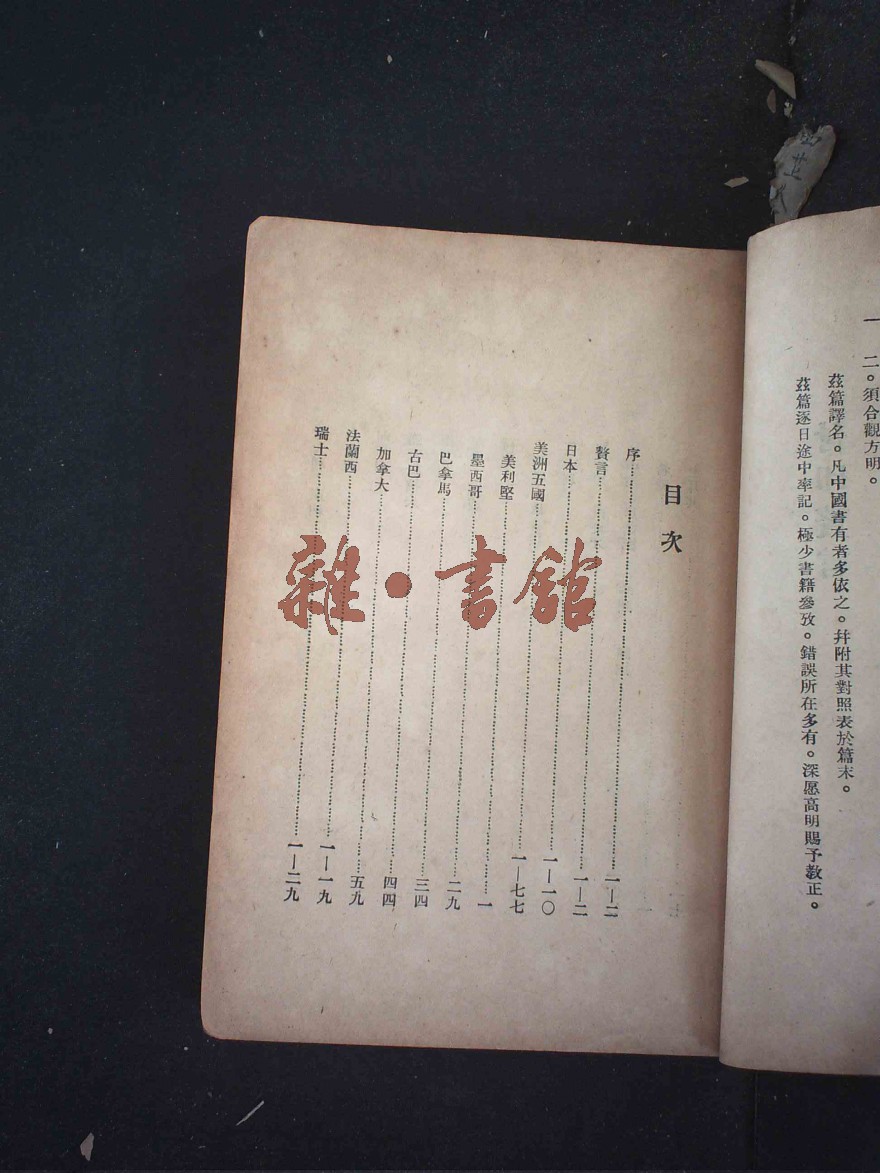 一
二。須合觀方明。
茲篇譯名。凡中國書有者多依之。幷附其對照表於篇末。
茲篇逐日途中率記。極少書籍參攷。錯誤所在多有。深愿高明賜予教正。
目次
序……一—二
贅言……一—二
日本……一—一〇
美洲五國……一—七七
美利堅……一
墨西哥……二九
巴拿馬……三四
古巴……四四
加拿大……五九
法蘭西……一—一九
瑞士……一—二九
雜·書館